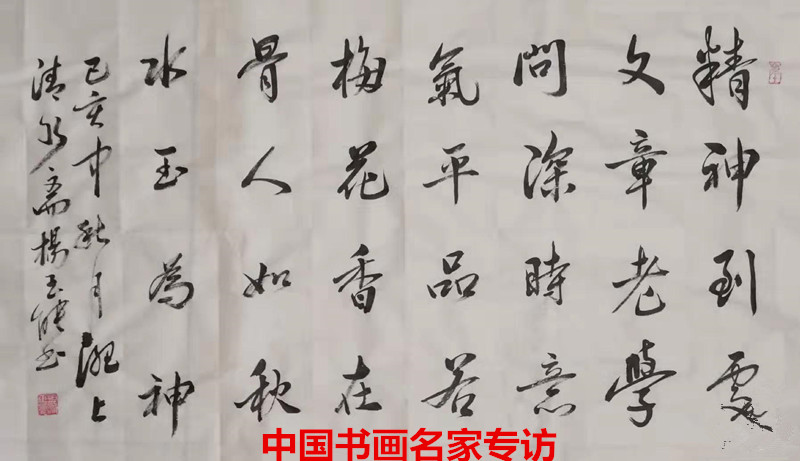 精神到處
文章老學
問深時意
氣平品若
梅花香在
骨人如秋
水玉為神
己亥中秋月淝上
清斋楊玉书
中国书画名家专访